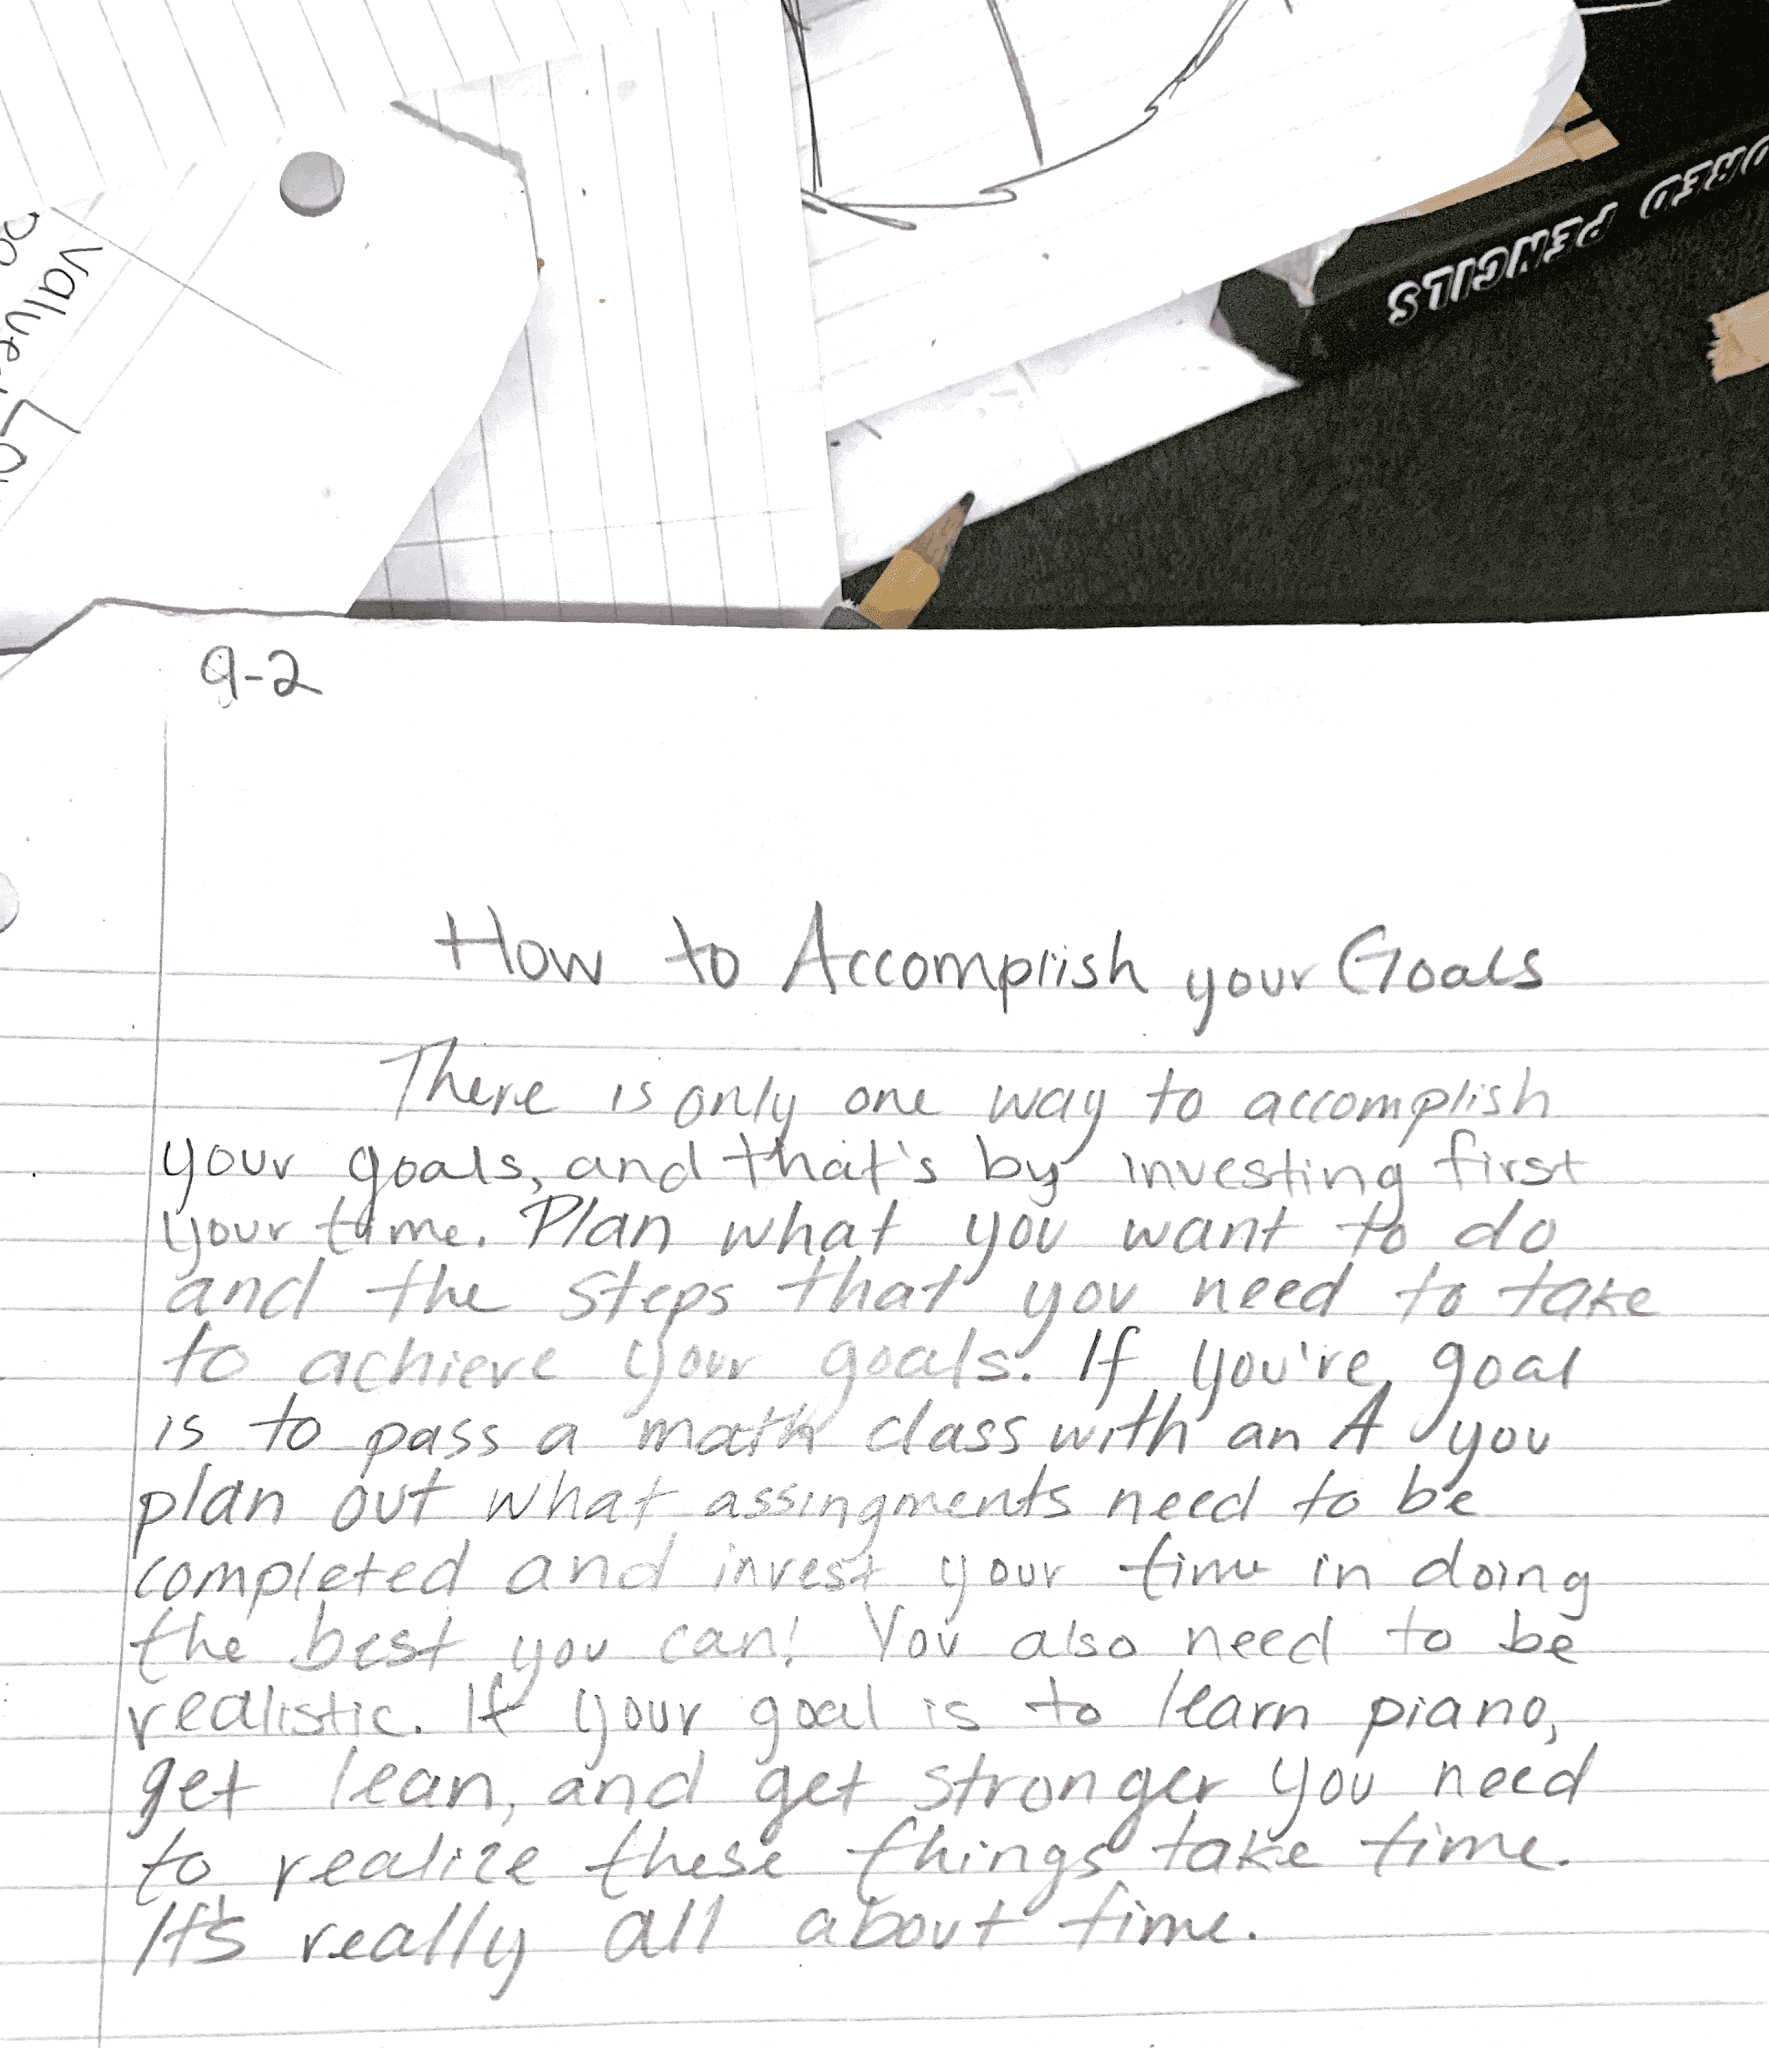 Value
COLORED PENCILS
9-2
How to Accomplish your Goals
There is only one way to accomplish
your goals, and that's by investing first
your time. Plan what you want to do
and the steps that you need to take
to achieve your goals. If you're goal
is to pass a math class with an A you
plan out what assingments need to be
completed and invest your time in doing
the best you can! You also need to be
realistic. If your goal is to learn piano,
get lean, and get stronger you need
to realize these things take time.
It's really all about time.